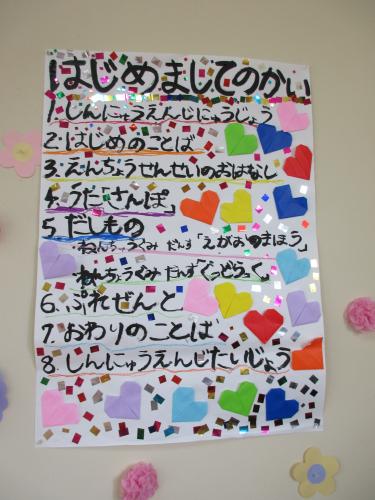 はじめましてのかい
1.しんにゅうえんじにゅうじょう
2.はじめのことば
3.えんちょうせんせいのおはなし
4.うた「さんぽ」
5.だしもの
ねんちゅうぐみ だんす「えがおのまほう」
ねんちょうぐみ だんす「ぐっどらっく」
6.ぷれぜんと
7.おわりのことば
8.しんにゅうえんじたいじょう